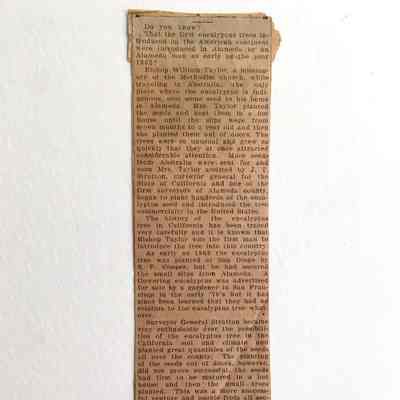 Do you know?
That the first eucalyptus trees in-
troduced on the American continent
were introduced in Alameda by an
Alameda man as early as the year
1862?
Bishop William Taylor, a mission-
ary of the Methodist church, while
traveling in Australia, the only
place where the eucalyptus is indi-
genous, sent some seed to his home
in Alameda. Mrs. Taylor planted
the seeds and kept them in a hot
house until the slips were from
seven months to a year old and then
she planted them out of doors. The
trees were so unusual and grew so
quickly that they at once attracted
considerable attention. More seeds
from Australia were sent for and
soon Mrs. Taylor assisted by J. T.
Stratton, surveyor general for the
State of California and one of the
first surveyors of Alameda county,
began to plant hundreds of the euca-
lyptus seed and introduced the tree
commercially in the United States.
The history of the eucalyptus
tree in California has been traced
very carefully and it is known that
Bishop Taylor was the first man to
introduce the tree into this country.
As early as 1865 the eucalyptus
tree was planted at San Diego by
E. F. Cooper, but he had secured
the small slips from Alameda. A
flowering eucalyptus was advertised
for sale by a gardener in San Fran-
cisco in the early '70's but it has
since been learned that they had no
relation to the eucalyptus tree what-
ever.
Surveyor General Stratton became
very enthusiastic over the possibili-
ties of the eucalyptus tree in the
California soil and climate and
planted great quantities of the seeds
all over the county. The planting
of the seeds out of doors, however,
did not prove successful, the seeds
had first to be matured in a hot
house and then the small trees
planted. This was a more success-
ful venture and people from all sec-